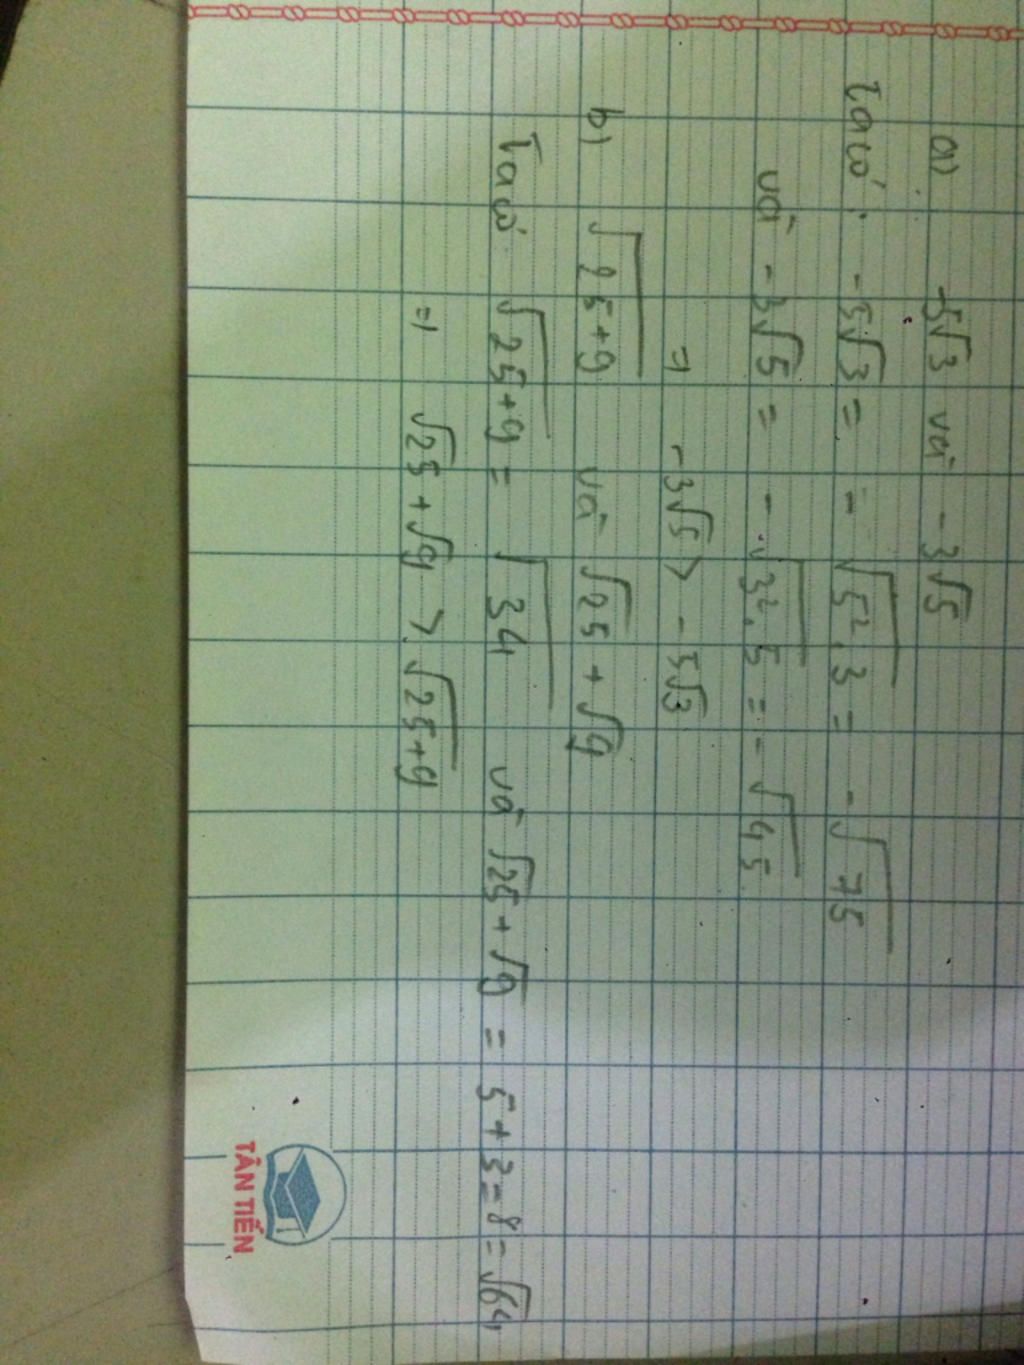 a) -5√3 và -3√5
Ta có: -5√3 = -√5².3 = -√75
và -3√5 = -√3².5 = -√45
=) -3√5 > -5√3
b) √25+9 và √25 + √9
Ta có √25+9 = √34 và √25 + √9 = 5+3=8=√64
=) √25 + √9 > √25+9
TÂN TIẾN